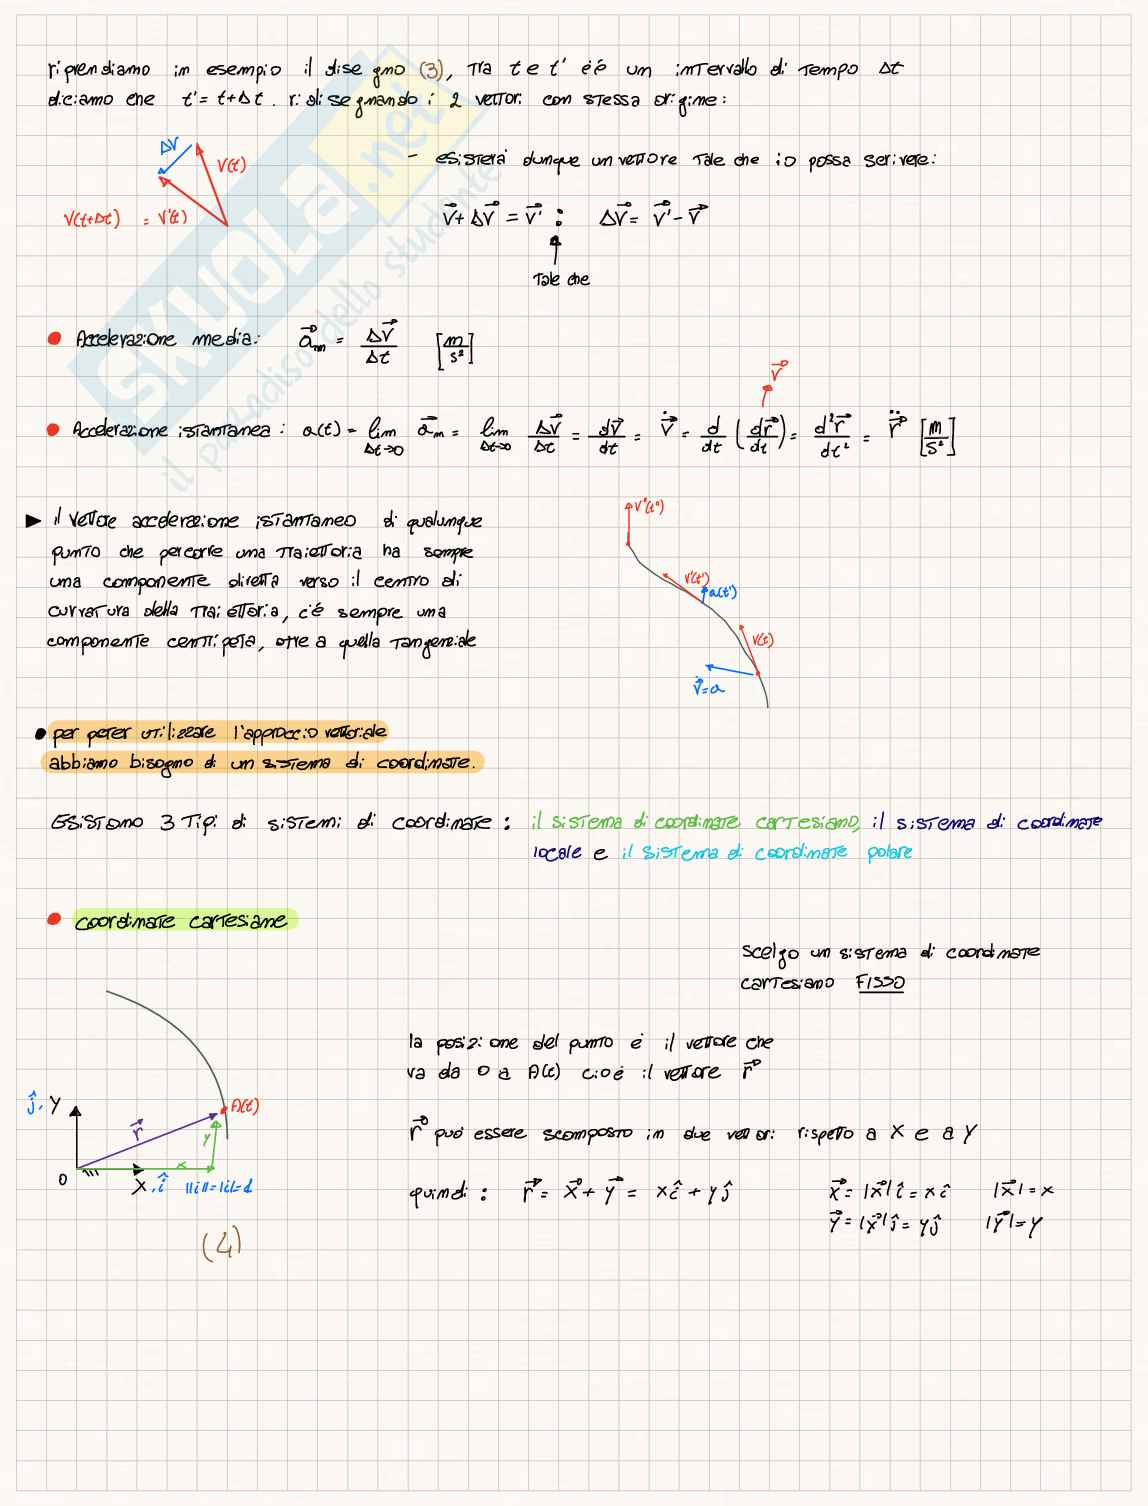 riprendiamo in esempio il disegno (3), tra t e t' c'è un intervallo di tempo Δt
diciamo che t' = t+Δt. ridisegnando i 2 vettori con stessa origine:
ΔV
V(t)
V(t+Δt) = V'(t)
- esisterà dunque un vettore tale che io possa scrivere:
V⃗ + ΔV⃗ = V⃗' : ΔV⃗ = V⃗' - V⃗
Tale che
SKUOLA.net
il paradiso dello studente
• Accelerazione media: a⃗m = ΔV⃗/Δt [m/s²]
V⃗
• Accelerazione istantanea: a(t) = lim Δt→0 a⃗m = lim Δt→0 ΔV⃗/Δt = dV⃗/dt = V⃗̇ = d/dt (dr⃗/dt) = d²r⃗/dt² = r⃗̈ [m/s²]
► il vettore accelerazione istantaneo di qualunque
punto che percorre una traiettoria ha sempre
una componente diretta verso il centro di
curvatura della traiettoria, c'è sempre una
componente centripeta, oltre a quella tangenziale
V''(t'')
V'(t')
a(t')
V(t)
V⃗̇ = a
• per poter utilizzare l'approccio vettoriale
abbiamo bisogno di un sistema di coordinate.
Esistono 3 tipi di sistemi di coordinate: il sistema di coordinate cartesiano, il sistema di coordinate
locale e il sistema di coordinate polare
• coordinate cartesiane
scelgo un sistema di coordinate
cartesiano FISSO
la posizione del punto è il vettore che
va da O a A(t) cioè il vettore r⃗
ĵ, Y
A(t)
r⃗
y
x
O
X, î ||i|| = |i| = 1
r⃗ può essere scomposto in due vettori rispetto a X e a Y
quindi: r⃗ = x⃗ + y⃗ = xî + yĵ
x⃗ = |x⃗|î = xî |x⃗| = x
y⃗ = |x⃗|ĵ = yĵ |y⃗| = y
(4)